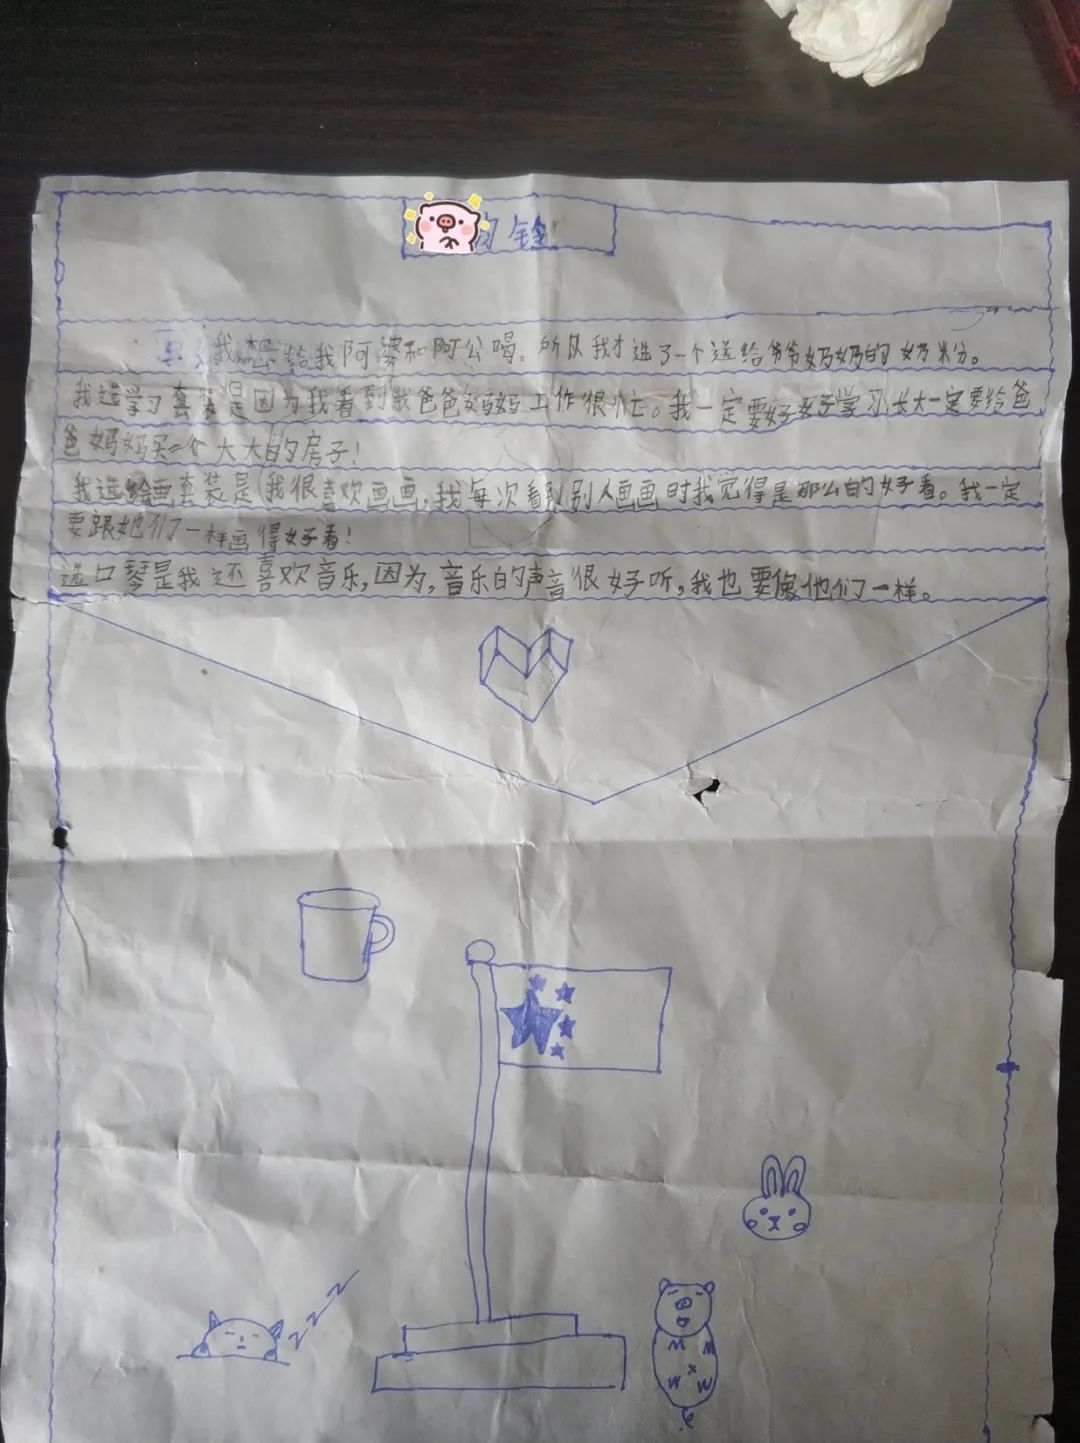 我想给我阿婆和阿公喝。所以我才选了一个送给爷爷奶奶的奶粉。
我选学习套装是因为我看到我爸爸妈妈工作很忙。我一定要好好学习长大一定要给爸
爸妈妈买一个大大的房子！
我选绘画套装是我很喜欢画画，我每次看到别人画画时我觉得是那么的好看。我一定
要跟她们一样画得好看！
选口琴是我还喜欢音乐，因为，音乐的声音很好听，我也要像他们一样。